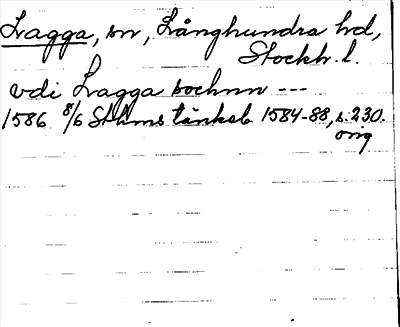 Lagga, sn, Långhundra hd,
Stockh. l.
vdi Lagga sochnn ---
1586 8/6 Sthms tänkeb 1584-88, s. 230.
orig